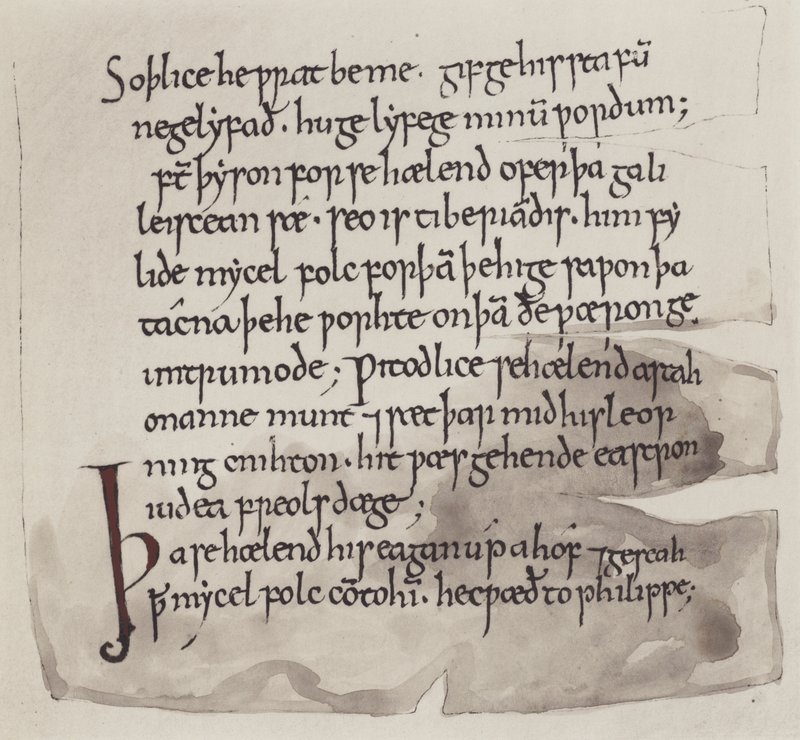 Soþlice he ƿrat be me. gif ge his stafū
ne gelẏfað. hu ge lẏfe ge minū ƿordum;
ft̄ þẏson for se hælend ofer þa gali
leiscean sǽ. seo is tiberiadis. him fẏ
lide mẏcel folc forþā þe hi ge saƿon þa
tacna þe he ƿorhte on þā ðe ƿæron ge
untrumode; Ƿitodlice se hælend astah
on anne munt ⁊ sæt þar mid his leor
ning cnihton. hit ƿæs gehende eastron
iudea freols dæge;
Þa se hælend his eagan up ahof ⁊ geseah
þ̄ mẏcel folc cō to hī. he cƿæð to philippe;